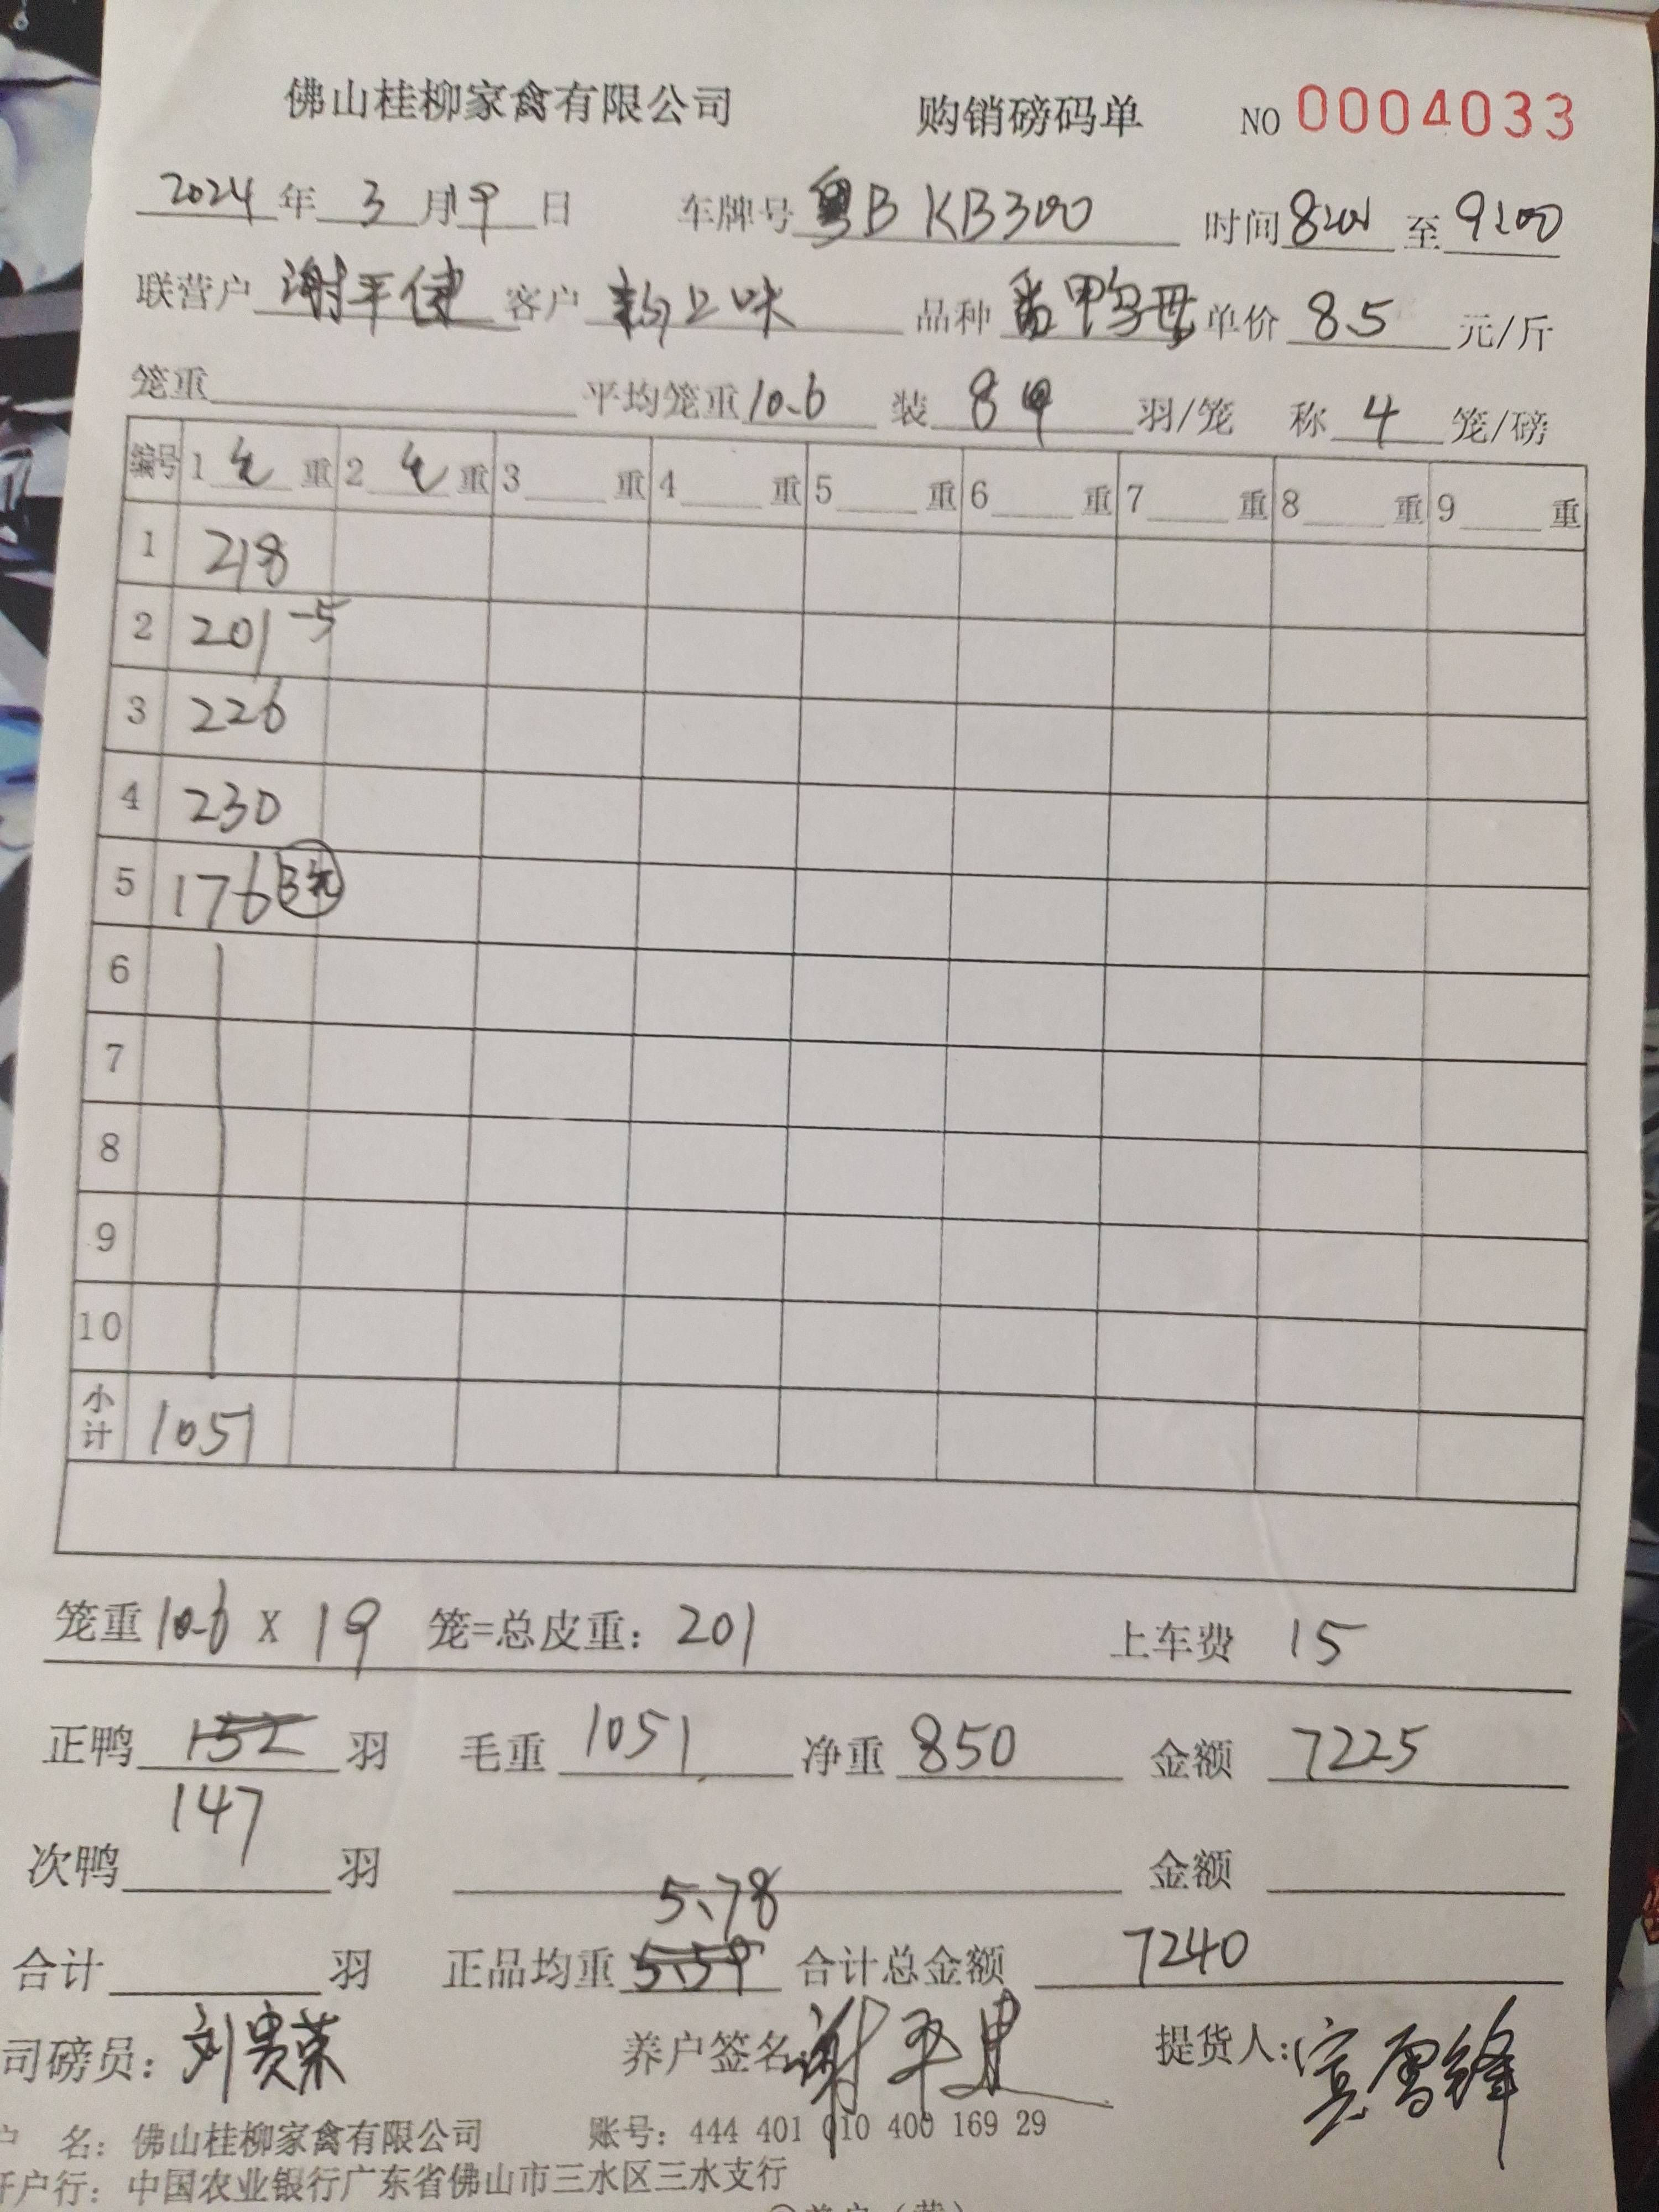 佛山桂柳家禽有限公司 购销磅码单 NO 0004033
2024 年 3 月 9 日 车牌号 粤B KB300 时间 至 9:00
联营户 谢平健 客户 上味 品种 番鸭母 单价 8.5 元/斤
笼重 平均笼重 10.6 装 8 羽/笼 称 4 笼/磅
编号 1 毛 重 2 毛 重 3 重 4 重 5 重 6 重 7 重 8 重 9 重
1 218
2 201 -5
3 226
4 230
5 176 3笼
6
7
8
9
10
小计 1051
笼重 10.6 X 19 笼=总皮重: 201 上车费 15
正鸭 152 羽 毛重 1051 净重 850 金额 7225
147
次鸭 羽 金额
5.78
合计 羽 正品均重 5.59 合计总金额 7240
司磅员: 刘贵荣 养户签名: 谢平 提货人:
户 名: 佛山桂柳家禽有限公司 账号: 444 401 010 400 169 29
开户行: 中国农业银行广东省佛山市三水区三水支行